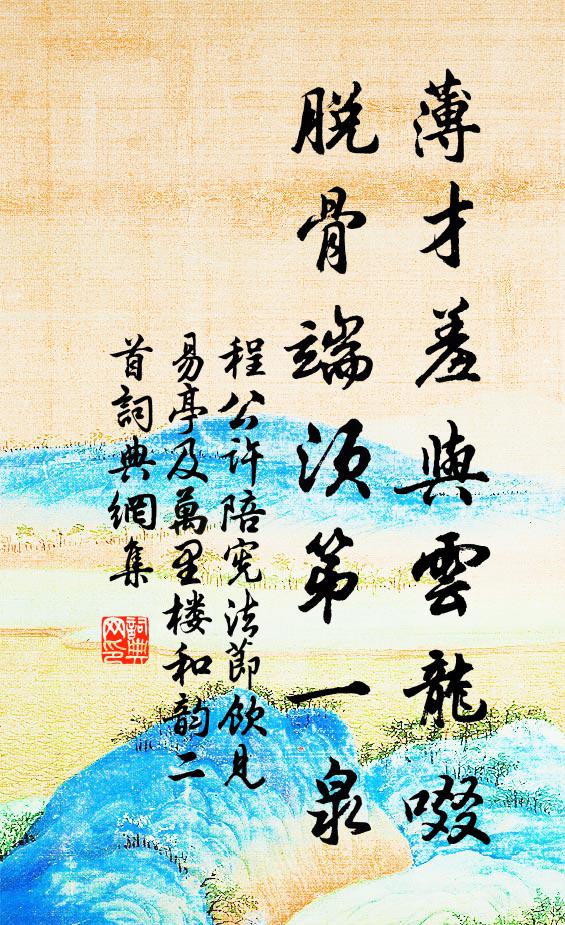 薄才羞與雲龍啜
脫骨端須第一泉
程公許陪宪法節飲見
易亭及萬里楼和韵二
首詞典網集
詞典网印